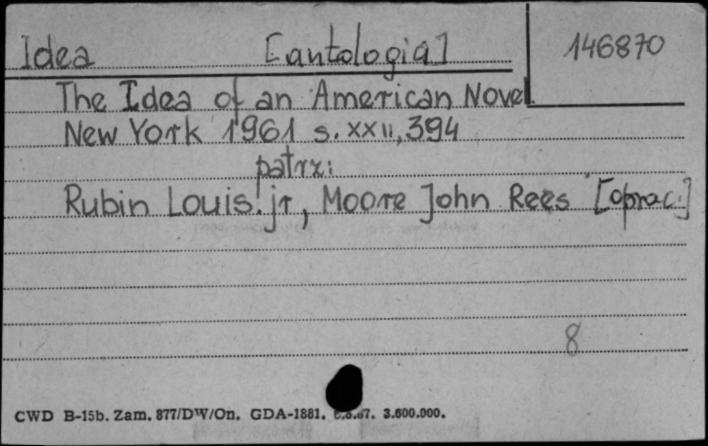 Idea [antologia] 146870
The Idea of an American Novel.
New York 1961 s. XXII, 394
patrz:
Rubin Louis jr, Moore John Rees [oprac.]
8
CWD B-15b. Zam. 877/DW/On. GDA-1881. 3.600.000.